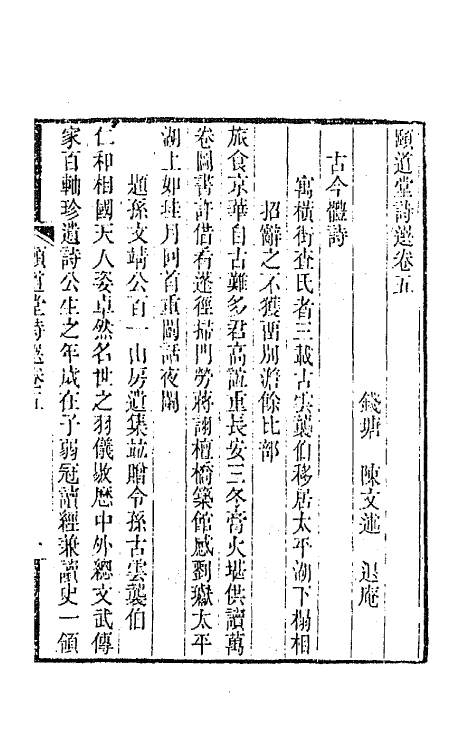 頤道堂詩選卷五
錢塘　陳文述　退庵
古今體詩
寓橫街査氏者三載古雲襲伯移居太平湖下榻相
招辭之不獲畱別澹餘比部
旅食京華自古難多君高誼重長安三冬膏火堪供讀萬
卷圖書許借看蓬徑掃門勞蔣詡檀橋築館感劉嶽太平
湖上如珪月回首重闌話夜闌
題孫文靖公百一山房遺集並贈令孫古雲襲伯
仁和相國天人姿卓然名世之羽儀敭歷中外總文武傳
家百軸珍遺詩公生之年歲在子弱冠讀經兼讀史一領
頤道堂詩選卷五
一